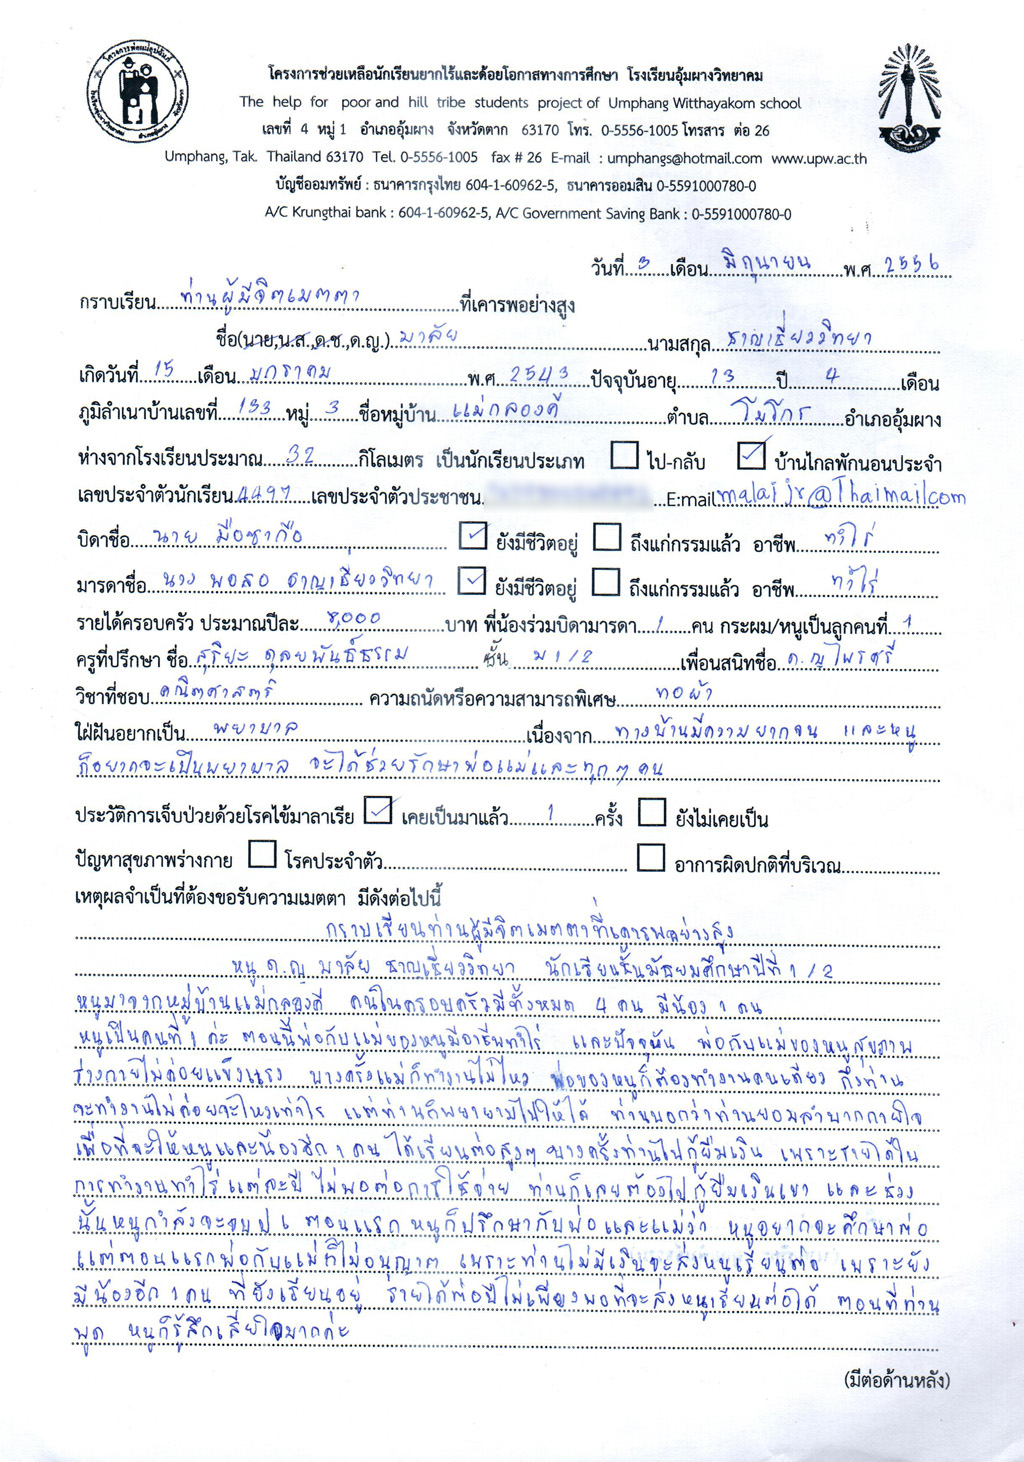 โครงการช่วยเหลือนักเรียนยากไร้และด้อยโอกาสทางการศึกษา โรงเรียนอุ้มผางวิทยาคม
The help for poor and hill tribe students project of Umphang Witthayakom school
เลขที่ 4 หมู่ 1 อำเภออุ้มผาง จังหวัดตาก 63170 โทร. 0-5556-1005 โทรสาร ต่อ 26
Umphang, Tak. Thailand 63170 Tel. 0-5556-1005 fax # 26 E-mail : umphangs@hotmail.com www.upw.ac.th
บัญชีออมทรัพย์ : ธนาคารกรุงไทย 604-1-60962-5, ธนาคารออมสิน 0-5591000780-0
A/C Krungthai bank : 604-1-60962-5, A/C Government Saving Bank : 0-5591000780-0
วันที่ 3 เดือน มิถุนายน พ.ศ. 2556
กราบเรียน ท่านผู้มีจิตเมตตา ที่เคารพอย่างสูง
ชื่อ(นาย,น.ส.,ด.ช.,ด.ญ.) มาลัย นามสกุล ชาญเชี่ยววิทยา
เกิดวันที่ 15 เดือน มกราคม พ.ศ. 2543 ปัจจุบันอายุ 13 ปี 4 เดือน
ภูมิลำเนาบ้านเลขที่ 133 หมู่ 3 ชื่อหมู่บ้าน แม่กลองคี ตำบล โมโกร อำเภออุ้มผาง
ห่างจากโรงเรียนประมาณ 32 กิโลเมตร เป็นนักเรียนประเภท ไป-กลับ บ้านไกลพักนอนประจำ
เลขประจำตัวนักเรียน 4497 เลขประจำตัวประชาชน E:mail malai_jr@Thaimail.com
บิดาชื่อ นาย มือซากือ ยังมีชีวิตอยู่ ถึงแก่กรรมแล้ว อาชีพ ทำไร่
มารดาชื่อ นาง พอสอ ชาญเชี่ยววิทยา ยังมีชีวิตอยู่ ถึงแก่กรรมแล้ว อาชีพ ทำไร่
รายได้ครอบครัว ประมาณปีละ 8,000 บาท พี่น้องร่วมบิดามารดา 1 คน กระผม/หนูเป็นลูกคนที่ 1
ครูที่ปรึกษา ชื่อ สุริยะ ดุลยพันธ์ธรรม ชั้น ม1/2 เพื่อนสนิทชื่อ ด.ญ ไพรศรี
วิชาที่ชอบ คณิตศาสตร์ ความถนัดหรือความสามารถพิเศษ ทอผ้า
ใฝ่ฝันอยากเป็น พยาบาล เนื่องจาก ทางบ้านมีความยากจน และหนู
ก็อยากจะเป็นพยาบาล จะได้ช่วยรักษาพ่อแม่และทุกๆ คน
ประวัติการเจ็บป่วยด้วยโรคไข้มาลาเรีย เคยเป็นมาแล้ว 1 ครั้ง ยังไม่เคยเป็น
ปัญหาสุขภาพร่างกาย โรคประจำตัว อาการผิดปกติที่บริเวณ
เหตุผลจำเป็นที่ต้องขอรับความเมตตา มีดังต่อไปนี้
กราบเรียนท่านผู้มีจิตเมตตาที่เคารพอย่างสูง
หนู ด.ญ มาลัย ชาญเชี่ยววิทยา นักเรียนชั้นมัธยมศึกษาปีที่ 1/2
หนูมาจากหมู่บ้านแม่กลองคี คนในครอบครัวมีทั้งหมด 4 คน มีน้อง 1 คน
หนูเป็นคนที่ 1 ค่ะ ตอนนี้พ่อกับแม่ของหนูมีอาชีพทำไร่ และปัจจุบัน พ่อกับแม่ของหนูสุขภาพ
ร่างกายไม่ค่อยแข็งแรง บางครั้งแม่ก็ทำงานไม่ไหว พ่อของหนูก็ต้องทำงานคนเดียว ถึงท่าน
จะทำงานไม่ค่อยจะไหวเท่าไร แต่ท่านก็พยายามไปให้ได้ ท่านบอกว่าท่านยอมลำบากกายใจ
เพื่อที่จะให้หนูและน้องอีก 1 คน ได้เรียนต่อสูงๆ บางครั้งท่านไปกู้ยืมเงิน เพราะรายได้ใน
การทำงานทำไร่ แต่ละปี ไม่พอต่อการใช้จ่าย ท่านก็เลยต้องไปกู้ยืมเงินเขา และช่วง
นั้นหนูกำลังจะจบ ป 6 ตอนแรก หนูก็ปรึกษากับพ่อและแม่ว่า หนูอยากจะศึกษาต่อ
แต่ตอนแรกพ่อกับแม่ก็ไม่อนุญาต เพราะท่านไม่มีเงินจะส่งหนูเรียนต่อ เพราะยัง
มีน้องอีก 1 คน ที่ยังเรียนอยู่ รายได้ต่อปีไม่เพียงพอที่จะส่งหนูเรียนต่อได้ ตอนที่ท่าน
พูด หนูก็รู้สึกเสียใจมากค่ะ
(มีต่อด้านหลัง)